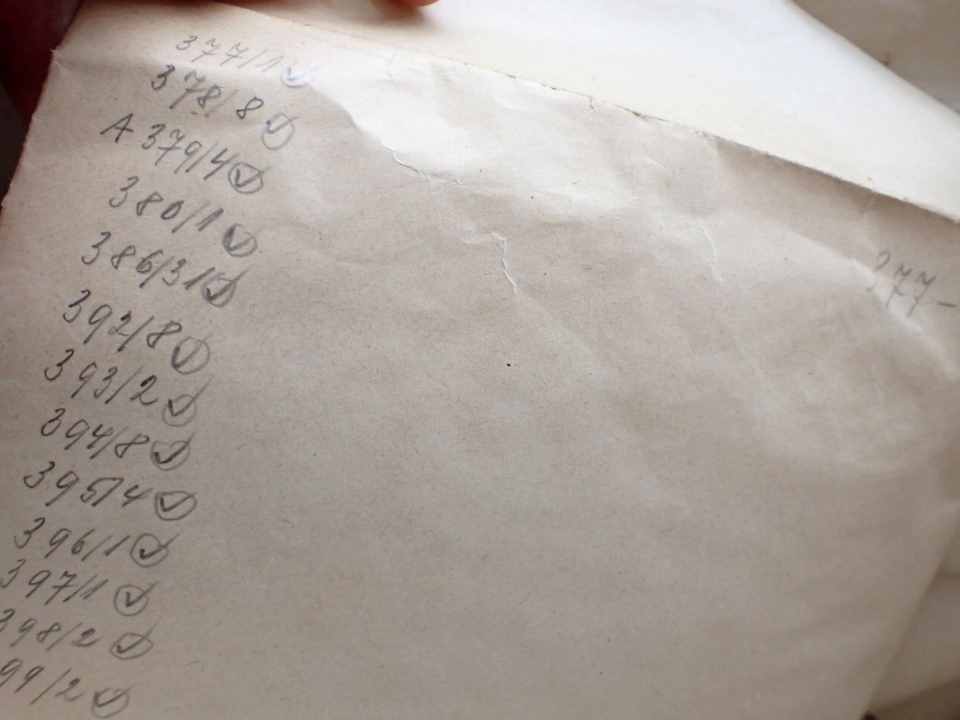 377/1 ✓
378/8 ✓
A 379/4 ✓
380/1 ✓
386/31 ✓
392/8 ✓
393/2 ✓
394/8 ✓
395/4 ✓
396/1 ✓
397/1 ✓
398/2 ✓
99/2 ✓
377-